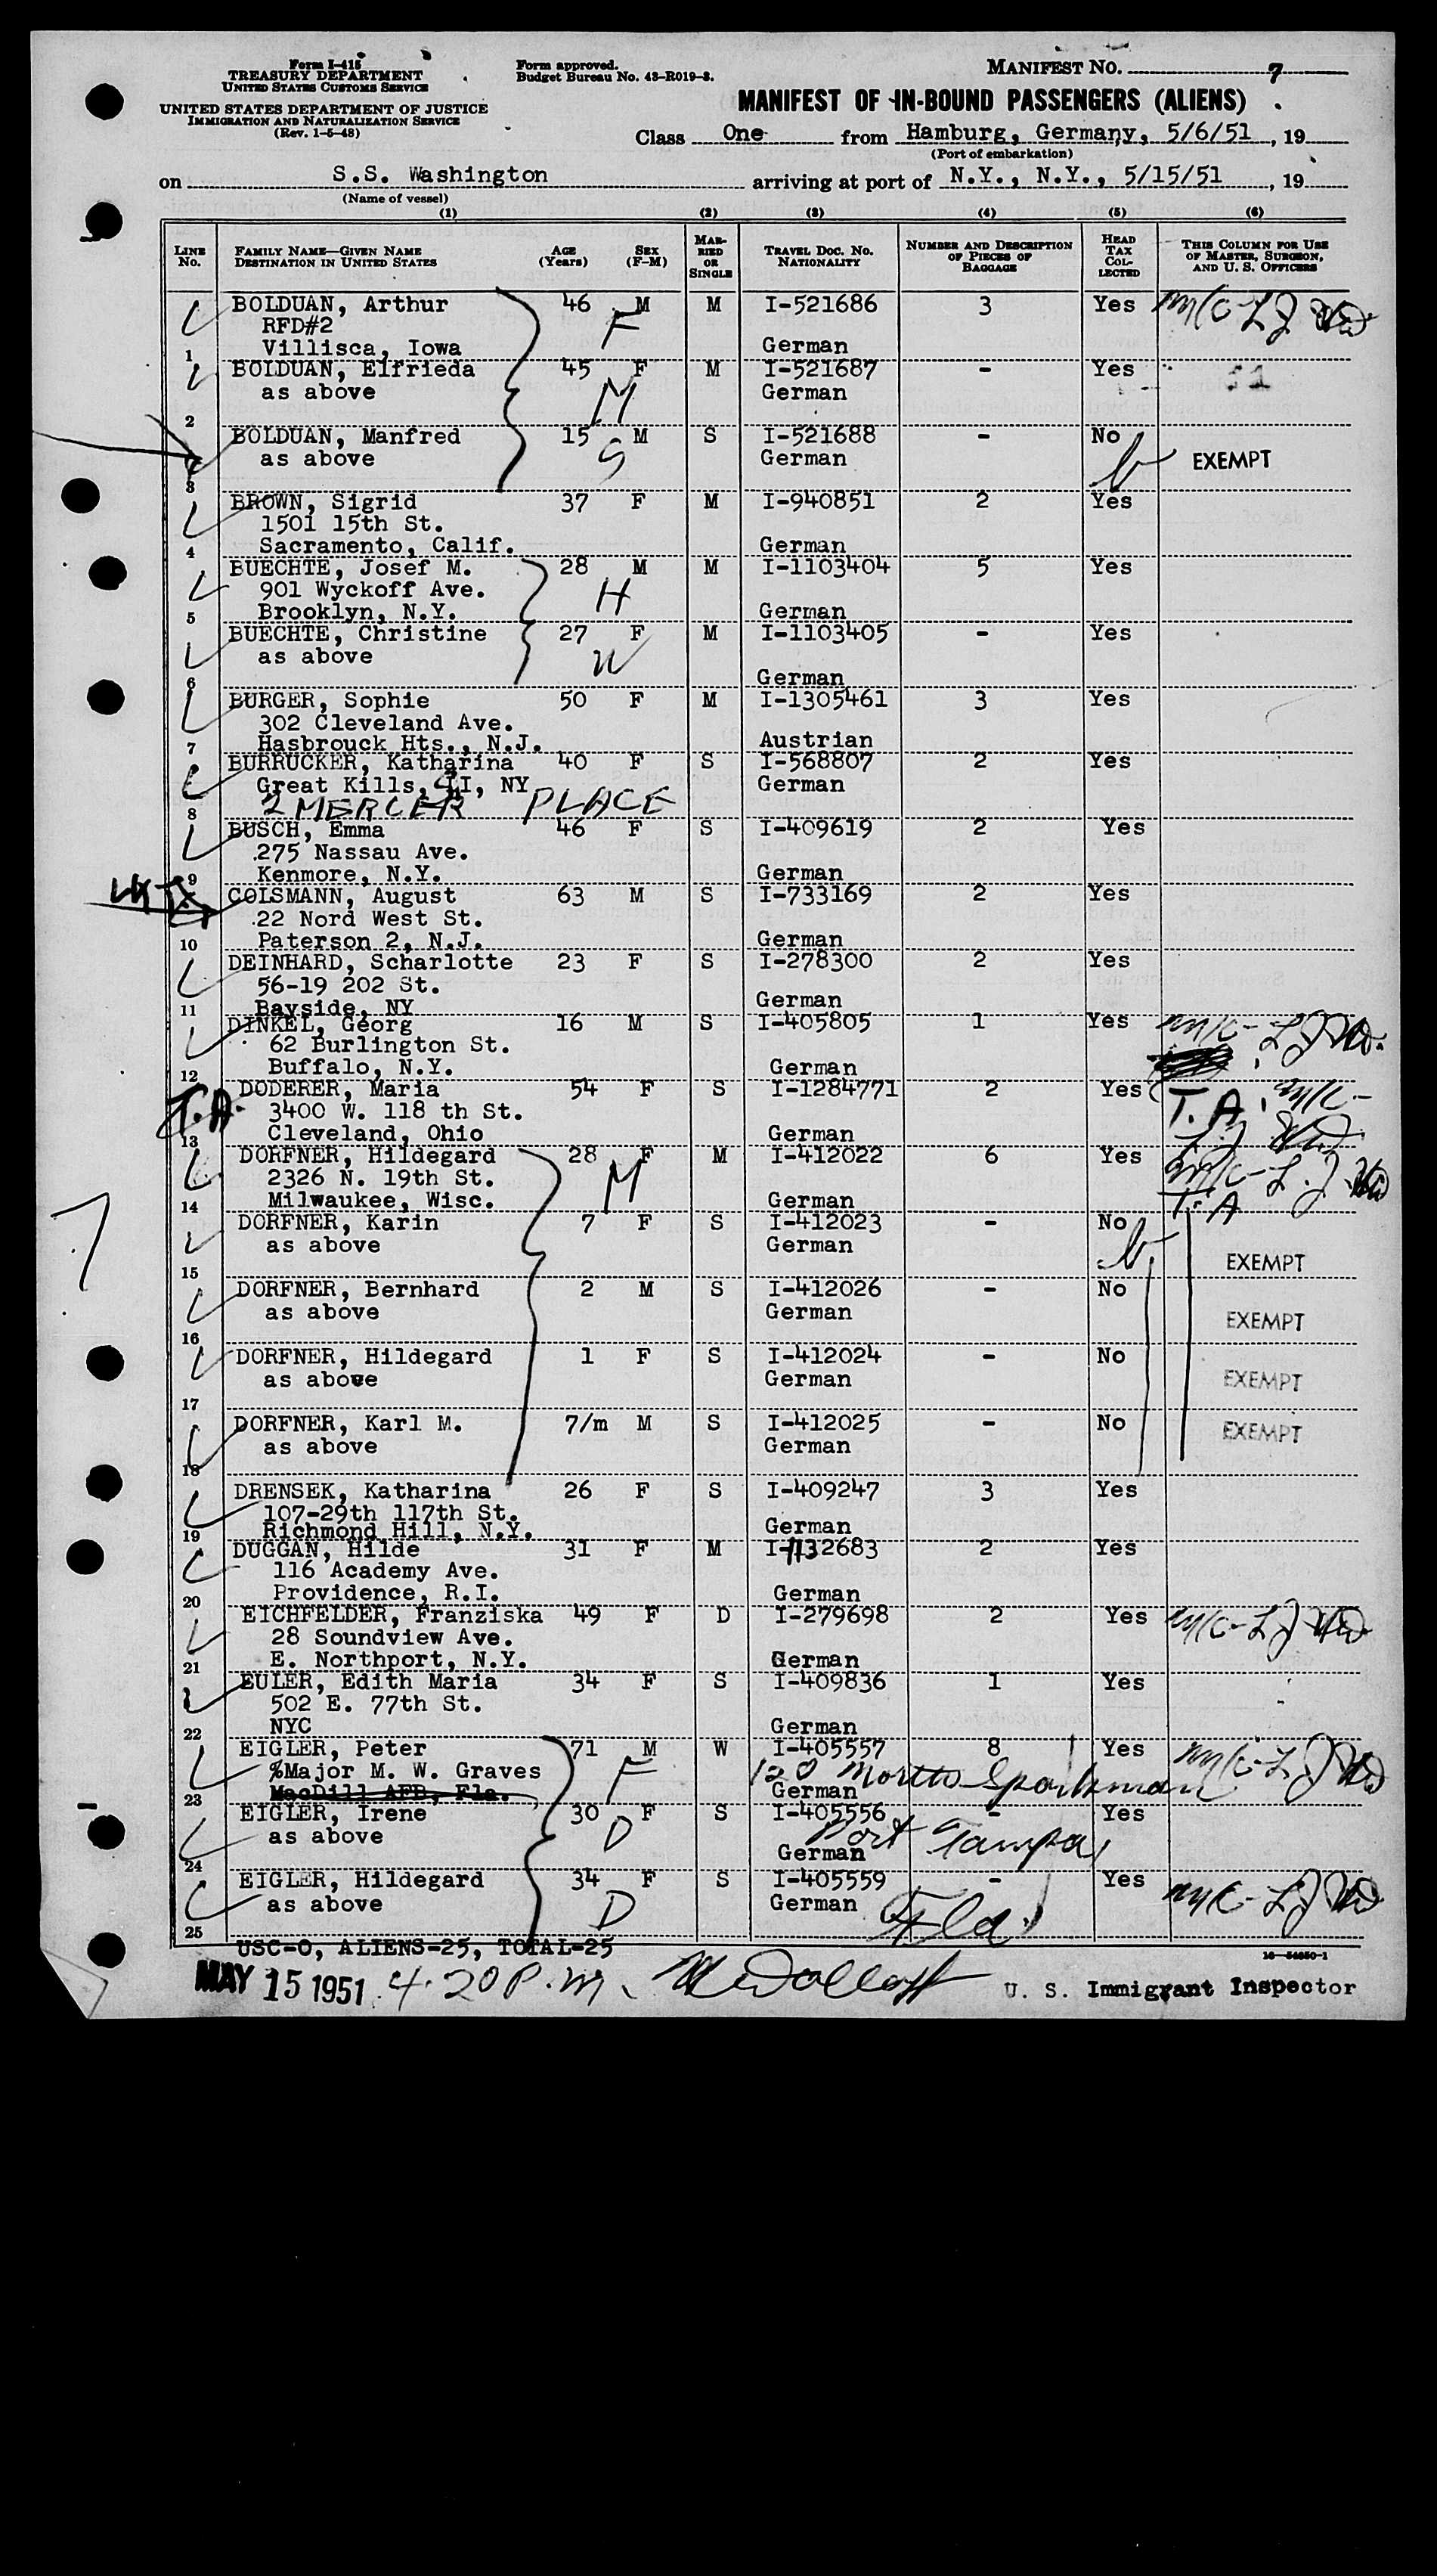 Form I-415
TREASURY DEPARTMENT
UNITED STATES CUSTOMS SERVICE
UNITED STATES DEPARTMENT OF JUSTICE
IMMIGRATION AND NATURALIZATION SERVICE
(Rev. 1-5-48)
Form approved.
Budget Bureau No. 43-R019-3.
MANIFEST NO. 7
MANIFEST OF IN-BOUND PASSENGERS (ALIENS)
Class One from Hamburg, Germany, 5/6/51, 19
(Port of embarkation)
on S.S. Washington arriving at port of N.Y., N.Y., 5/15/51, 19
(Name of vessel)
(1) (2) (3) (4) (5) (6)
LINE NO. FAMILY NAME—GIVEN NAME DESTINATION IN UNITED STATES AGE (Years) SEX (F-M) MARRIED OR SINGLE TRAVEL DOC. NO. NATIONALITY NUMBER AND DESCRIPTION OF PIECES OF BAGGAGE HEAD TAX COLLECTED THIS COLUMN FOR USE OF MASTER, SURGEON, AND U. S. OFFICERS
BOLDUAN, Arthur 46 M M I-521686 3 Yes
RFD#2 F
1 Villisca, Iowa German
BOLDUAN, Elfrieda 45 F M I-521687 - Yes
as above M German
2
BOLDUAN, Manfred 15 M S I-521688 - No
as above S German EXEMPT
3
BROWN, Sigrid 37 F M I-940851 2 Yes
1501 15th St.
4 Sacramento, Calif. German
BUECHTE, Josef M. 28 M M I-1103404 5 Yes
901 Wyckoff Ave. H
5 Brooklyn, N.Y. German
BUECHTE, Christine 27 F M I-1103405 - Yes
as above W
6 German
BURGER, Sophie 50 F M I-1305461 3 Yes
302 Cleveland Ave.
7 Hasbrouck Hts., N.J. Austrian
BURRUCKER, Katharina 40 F S I-568807 2 Yes
Great Kills, SI, NY German
8 2 MERCER PLACE
BUSCH, Emma 46 F S I-409619 2 Yes
275 Nassau Ave.
9 Kenmore, N.Y. German
COLSMANN, August 63 M S I-733169 2 Yes
22 Nord West St.
10 Paterson 2, N.J. German
DEINHARD, Scharlotte 23 F S I-278300 2 Yes
56-19 202 St.
11 Bayside, NY German
DINKEL, Georg 16 M S I-405805 1 Yes
62 Burlington St.
12 Buffalo, N.Y. German
T.A. DODERER, Maria 54 F S I-1284771 2 Yes T.A.
3400 W. 118 th St.
13 Cleveland, Ohio German
DORFNER, Hildegard 28 F M I-412022 6 Yes
2326 N. 19th St. M
14 Milwaukee, Wisc. German T.A
DORFNER, Karin 7 F S I-412023 - No
as above German EXEMPT
15
DORFNER, Bernhard 2 M S I-412026 - No
as above German EXEMPT
16
DORFNER, Hildegard 1 F S I-412024 - No
as above German EXEMPT
17
DORFNER, Karl M. 7/m M S I-412025 - No
as above German EXEMPT
18
DRENSEK, Katharina 26 F S I-409247 3 Yes
107-29th 117th St.
19 Richmond Hill, N.Y. German
DUGGAN, Hilde 31 F M I-1132683 2 Yes
116 Academy Ave.
20 Providence, R.I. German
EICHFELDER, Franziska 49 F D I-279698 2 Yes
28 Soundview Ave.
21 E. Northport, N.Y. German
EULER, Edith Maria 34 F S I-409836 1 Yes
502 E. 77th St.
22 NYC German
EIGLER, Peter 71 M W I-405557 8 Yes
%Major M. W. Graves F 120 North Sparkman
23 MacDill AFB, Fla. German
EIGLER, Irene 30 F S I-405556 - Yes
as above D Port Tampa,
24 German
EIGLER, Hildegard 34 F S I-405559 - Yes
as above D German Fla.
25
USC-0, ALIENS-25, TOTAL-25
16-54650-1
MAY 15 1951 4:20 P.M. U. S. Immigrant Inspector
7